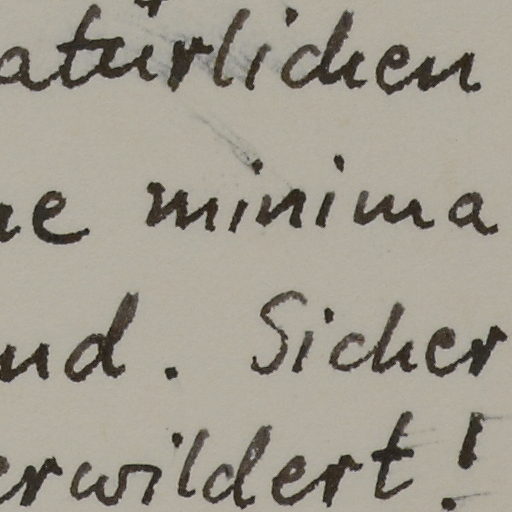 atürlichen
ne minima
und. Sicher
erwildert!